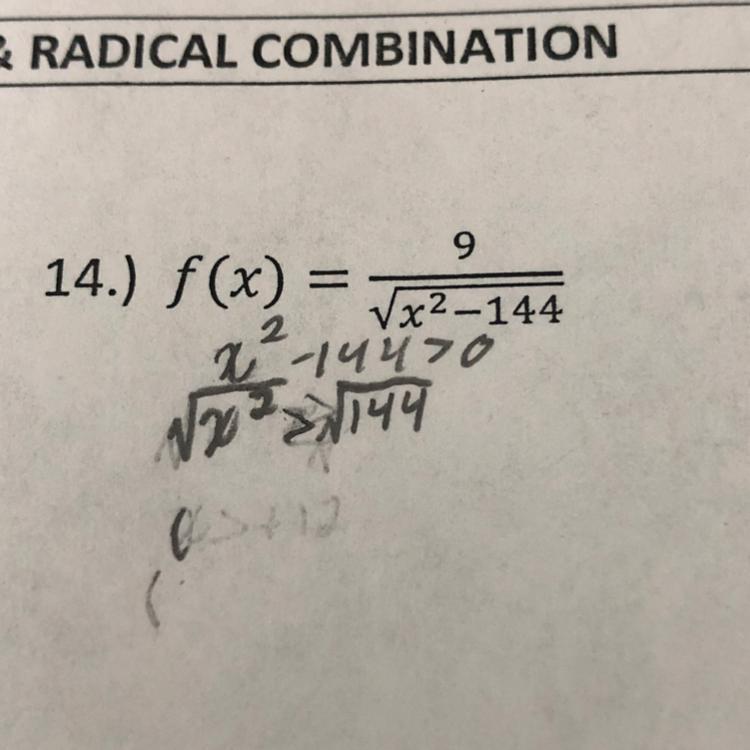 & RADICAL COMBINATION
14.) f(x) = 9/√(x²−144)
x² -144 > 0
√x² > √144
> +12
(